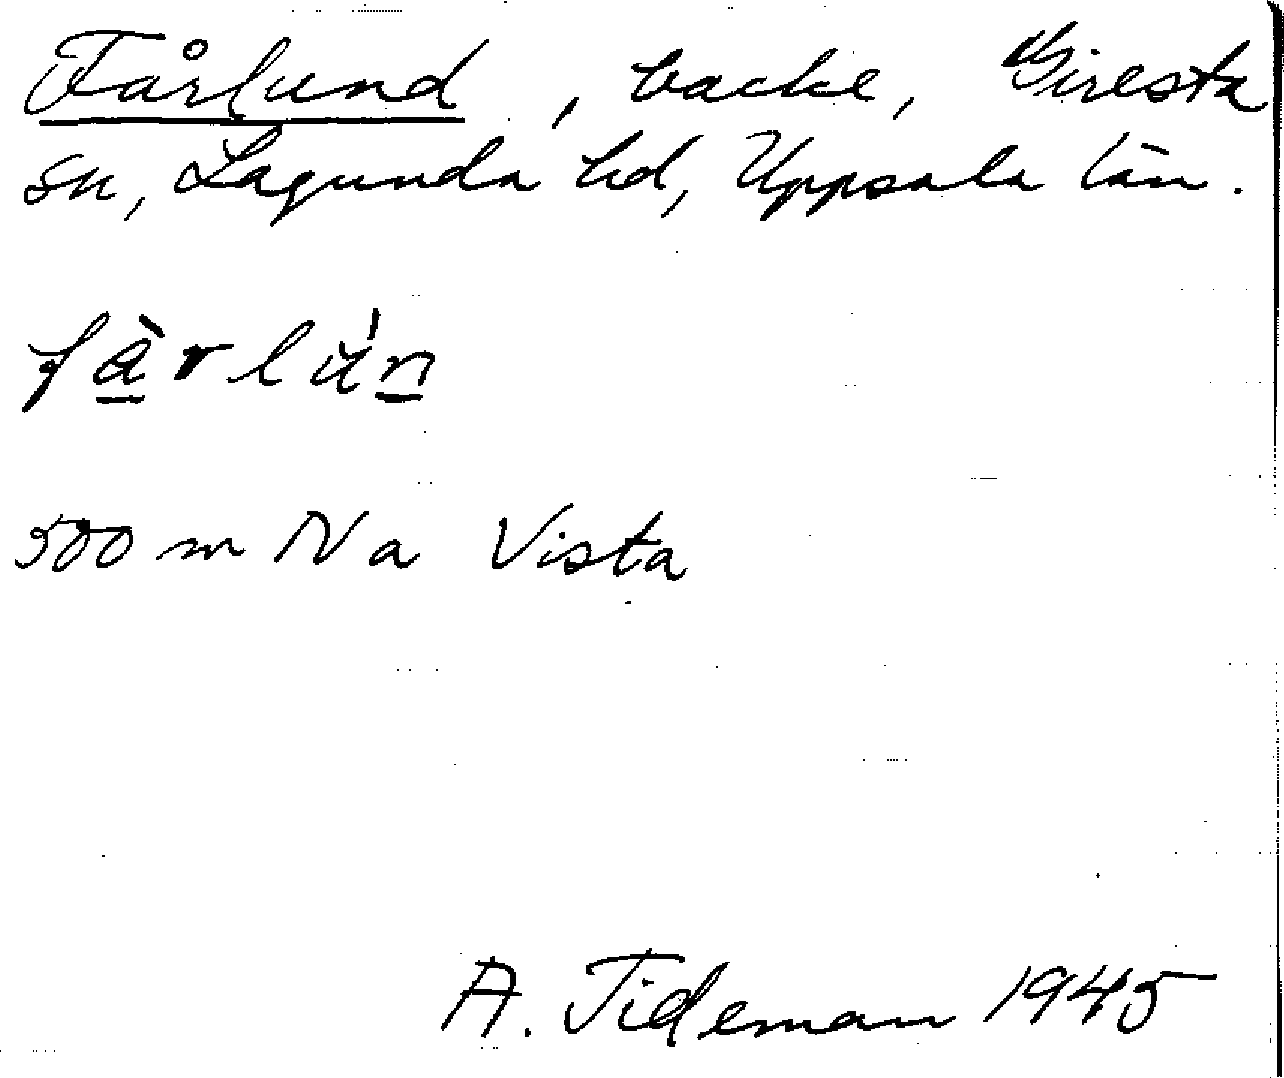 Fårlund, backe, Giresta
sn, Lagunda hd, Uppsala län.
fàrlún
500 m N a Vista
A. Tideman 1945